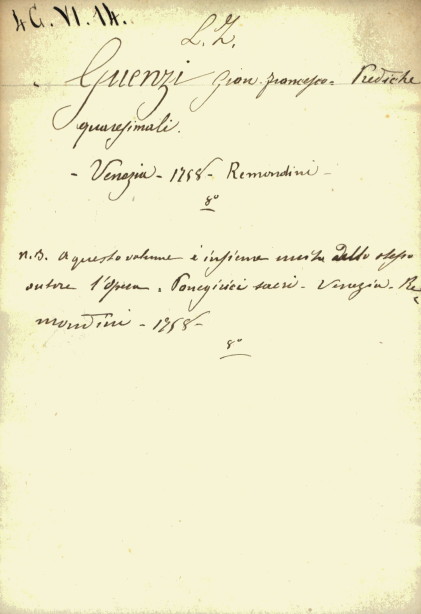 4 G. VI. 14.
L. Z.
Guenzi Gian. Francesco = Prediche
quaresimali.
- Venezia - 1768 - Remondini -
8º
N.B. A questo volume è insieme unita dello stesso
autore l'opera = Panegirici sacri - Venezia - Re=
mondini - 1768 -
8º